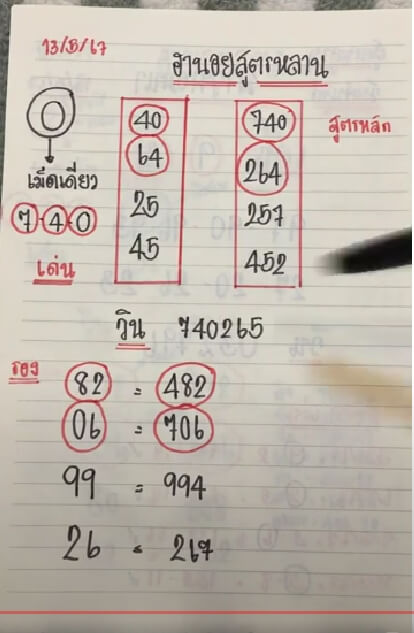 13/5/67
ฮานอยสูตรหลาน
0
เม็ดเดียว
7-4-0
เด่น
40
64
25
45
740
264
257
452
สูตรหลัก
วิน 740265
รอง
82 = 482
06 = 706
99 = 994
26 = 267